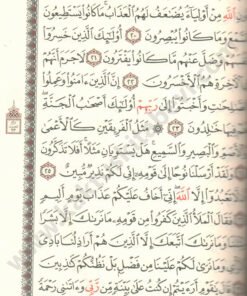 ٱللَّهِ مِنْ أَوْلِيَآءَ يُضَٰعَفُ لَهُمُ ٱلْعَذَابُ مَا كَانُوا۟ يَسْتَطِيعُونَ
وَمَا كَانُوا۟ يُبْصِرُونَ ٢٠ أُو۟لَٰٓئِكَ ٱلَّذِينَ خَسِرُوٓا۟
وَضَلَّ عَنْهُم مَّا كَانُوا۟ يَفْتَرُونَ ٢١ لَا جَرَمَ أَنَّهُمْ
ٱلْءَاخِرَةِ هُمُ ٱلْأَخْسَرُونَ ٢٢ إِنَّ ٱلَّذِينَ ءَامَنُوا۟ وَعَمِلُوا۟
وَأَخْبَتُوٓا۟ إِلَىٰ رَبِّهِمْ أُو۟لَٰٓئِكَ أَصْحَٰبُ ٱلْجَنَّةِ
خَٰلِدُونَ ٢٣ ۞ مَثَلُ ٱلْفَرِيقَيْنِ كَٱلْأَعْمَىٰ
وَٱلْبَصِيرِ وَٱلسَّمِيعِ هَلْ يَسْتَوِيَانِ مَثَلًا أَفَلَا تَذَكَّرُونَ
أَرْسَلْنَا نُوحًا إِلَىٰ قَوْمِهِۦٓ إِنِّى لَكُمْ نَذِيرٌ مُّبِينٌ ٢٥
تَعْبُدُوٓا۟ إِلَّا ٱللَّهَ إِنِّىٓ أَخَافُ عَلَيْكُمْ عَذَابَ يَوْمٍ أَلِيمٍ
فَقَالَ ٱلْمَلَأُ ٱلَّذِينَ كَفَرُوا۟ مِن قَوْمِهِۦ مَا نَرَىٰكَ إِلَّا بَشَرًا
وَمَا نَرَىٰكَ ٱتَّبَعَكَ إِلَّا ٱلَّذِينَ هُمْ أَرَاذِلُنَا بَادِىَ
وَمَا نَرَىٰ لَكُمْ عَلَيْنَا مِن فَضْلٍۭ بَلْ نَظُنُّكُمْ كَٰذِبِينَ
يَٰقَوْمِ أَرَءَيْتُمْ إِن كُنتُ عَلَىٰ بَيِّنَةٍ مِّن رَّبِّى وَءَاتَىٰنِى رَحْمَةً